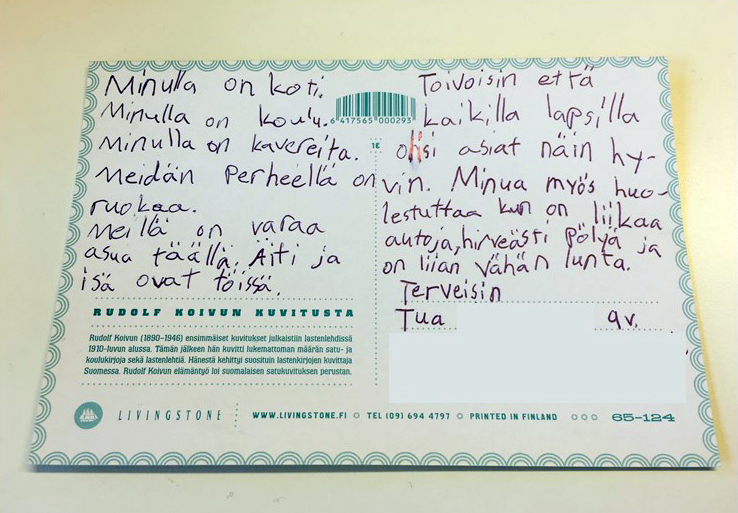 Minulla on koti.
Minulla on koulu.
Minulla on kavereita.
Meidän perheellä on
ruokaa.
Meillä on varaa
asua täällä. Äiti ja
isä ovat töissä.
6 417565 000293
1€
Toivoisin että
kaikilla lapsilla
olisi asiat näin hy-
vin. Minua myös huo-
lestuttaa kun on liikaa
autoja, hirveästi pölyä ja
on liian vähän lunta.
Terveisin
Tua 9v.
RUDOLF KOIVUN KUVITUSTA
Rudolf Koivun (1890–1946) ensimmäiset kuvitukset julkaistiin lastenlehdissä
1910-luvun alussa. Tämän jälkeen hän kuvitti lukemattoman määrän satu- ja
koulukirjoja sekä lastenlehtiä. Hänestä kehittyi suosituin lastenkirjojen kuvittaja
Suomessa. Rudolf Koivun elämäntyö loi suomalaisen satukuvituksen perustan.
LIVINGSTONE WWW.LIVINGSTONE.FI ○ TEL (09) 694 4797 ○ PRINTED IN FINLAND ○○○ 65-124